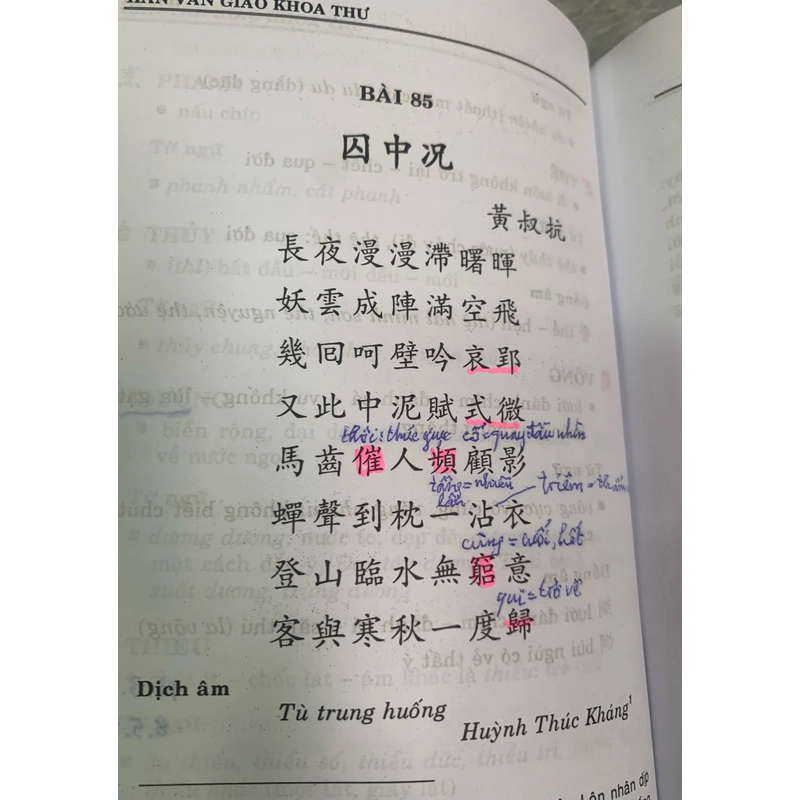 HÁN VĂN GIÁO KHOA THƯ
BÀI 85
囚中况
黃叔抗
長夜漫漫滯曙暉
妖雲成陣滿空飛
幾囘呵壁吟哀郢
又此中泥賦式微
thôi: thúc giục cố = quay đầu nhìn
馬齒催人頻顧影
tần = nhiều lần
triêm = thấm
蟬聲到枕一沾衣
cùng = cuối, hết
登山臨水無窮意
qui = trở về
客與寒秋一度歸
Dịch âm
Tù trung huống
Huỳnh Thúc Kháng¹